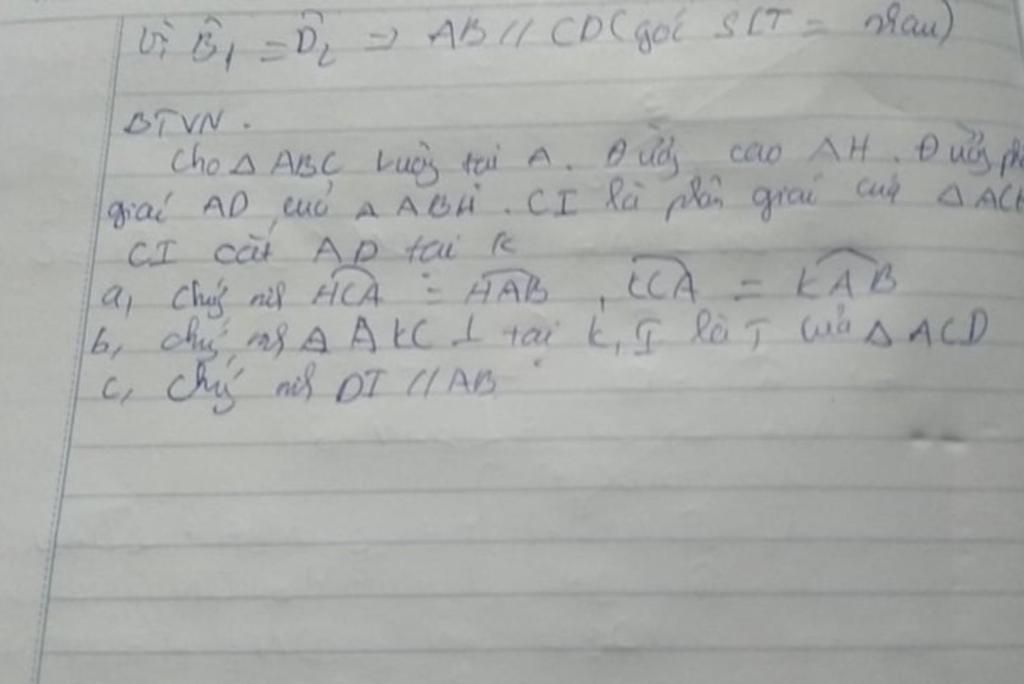 Vì B̂₁ = D̂₂ => AB // CD (góc SLT = nhau)
BTVN.
Cho Δ ABC vuông tại A. Đường cao AH. Đường ph
giác AD của Δ ABH. CI là phân giác của Δ ACH
CI cắt AD tại K
a, Chứng mh HCA = HAB , KCA = KAB
b, chứng mh Δ AKC ⊥ tại K, I là của Δ ACD
c, Chứng mh DI // AB